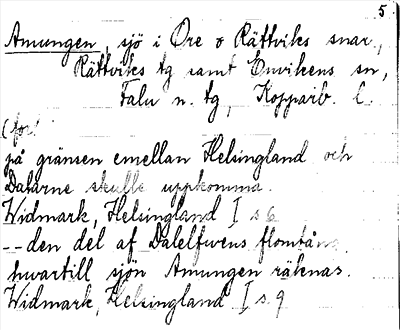 5
Amungen, sjö i Ore o Rättviks snar.,
Rättviks tg samt Envikens sn,
Falu n. tg, Kopparb. l.
(fort
på gränsen emellan Helsingland och
Dalarne skulle uppkomma.
Widmark, Helsingland I s 6
--den del af Dalelfwens flomtång
hwartill sjön Amungen räknas.
Widmark, Helsingland I s. 9